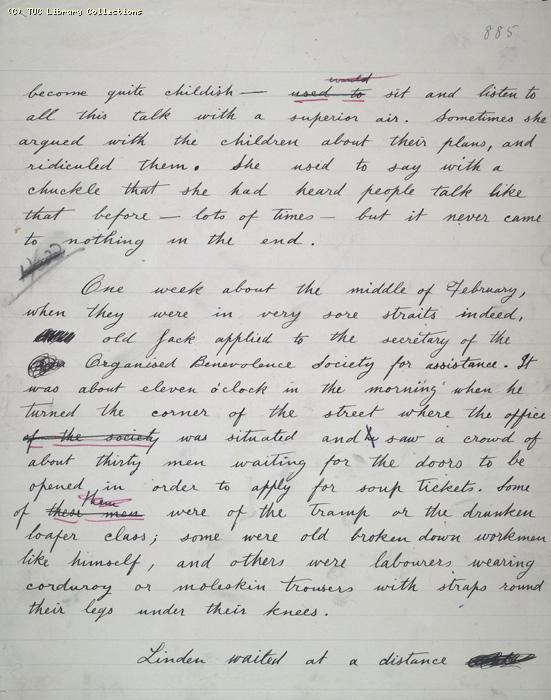 (C) TUC Library Collections
885
become quite childish — used to would sit and listen to
all this talk with a superior air. Sometimes she
argued with the children about their plans, and
ridiculed them. She used to say with a
chuckle that she had heard people talk like
that before — lots of times — but it never came
to nothing in the end.
One week about the middle of February,
when they were in very sore straits indeed,
old Jack applied to the secretary of the
Organised Benevolence Society for assistance. It
was about eleven o'clock in the morning when he
turned the corner of the street where the office
of the society was situated and saw a crowd of
about thirty men waiting for the doors to be
opened in order to apply for soup tickets. Some
of these men them were of the tramp or the drunken
loafer class; some were old broken down workmen
like himself, and others were labourers wearing
corduroy or moleskin trousers with straps round
their legs under their knees.
Linden waited at a distance